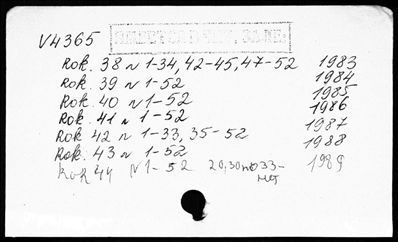 V4365
Rok. 38 N 1-34, 42-45, 47-52 1983
Rok. 39 N 1-52 1984
Rok. 40 N 1-52 1985
Rok. 41 N 1-52 1986
Rok 42 N 1-33, 35-52 1987
Rok. 43 N 1-52 1988
Rok 44 N 1-52 20,30 33- 1989